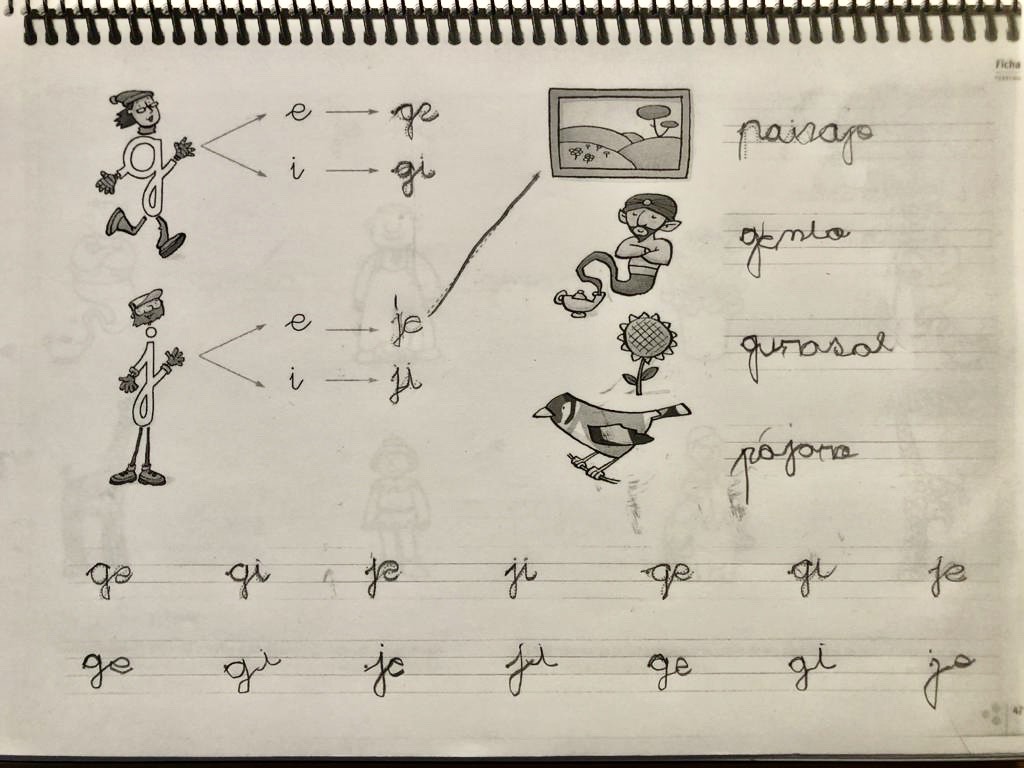 Ficha
e ge
i gi
paisaje
genio
e je
i ji
girasol
pájaro
ge gi je ji ge gi je
ge gi je ji ge gi je